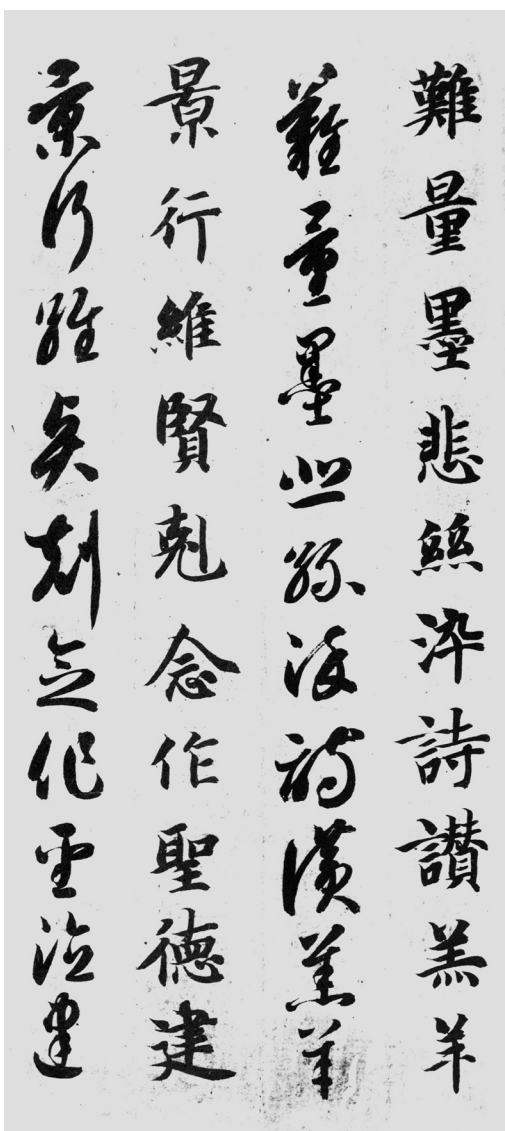 難量墨悲絲染詩讚羔羊
難量墨悲絲染詩讚羔羊
景行維賢剋念作聖德建
景行維賢剋念作聖德建